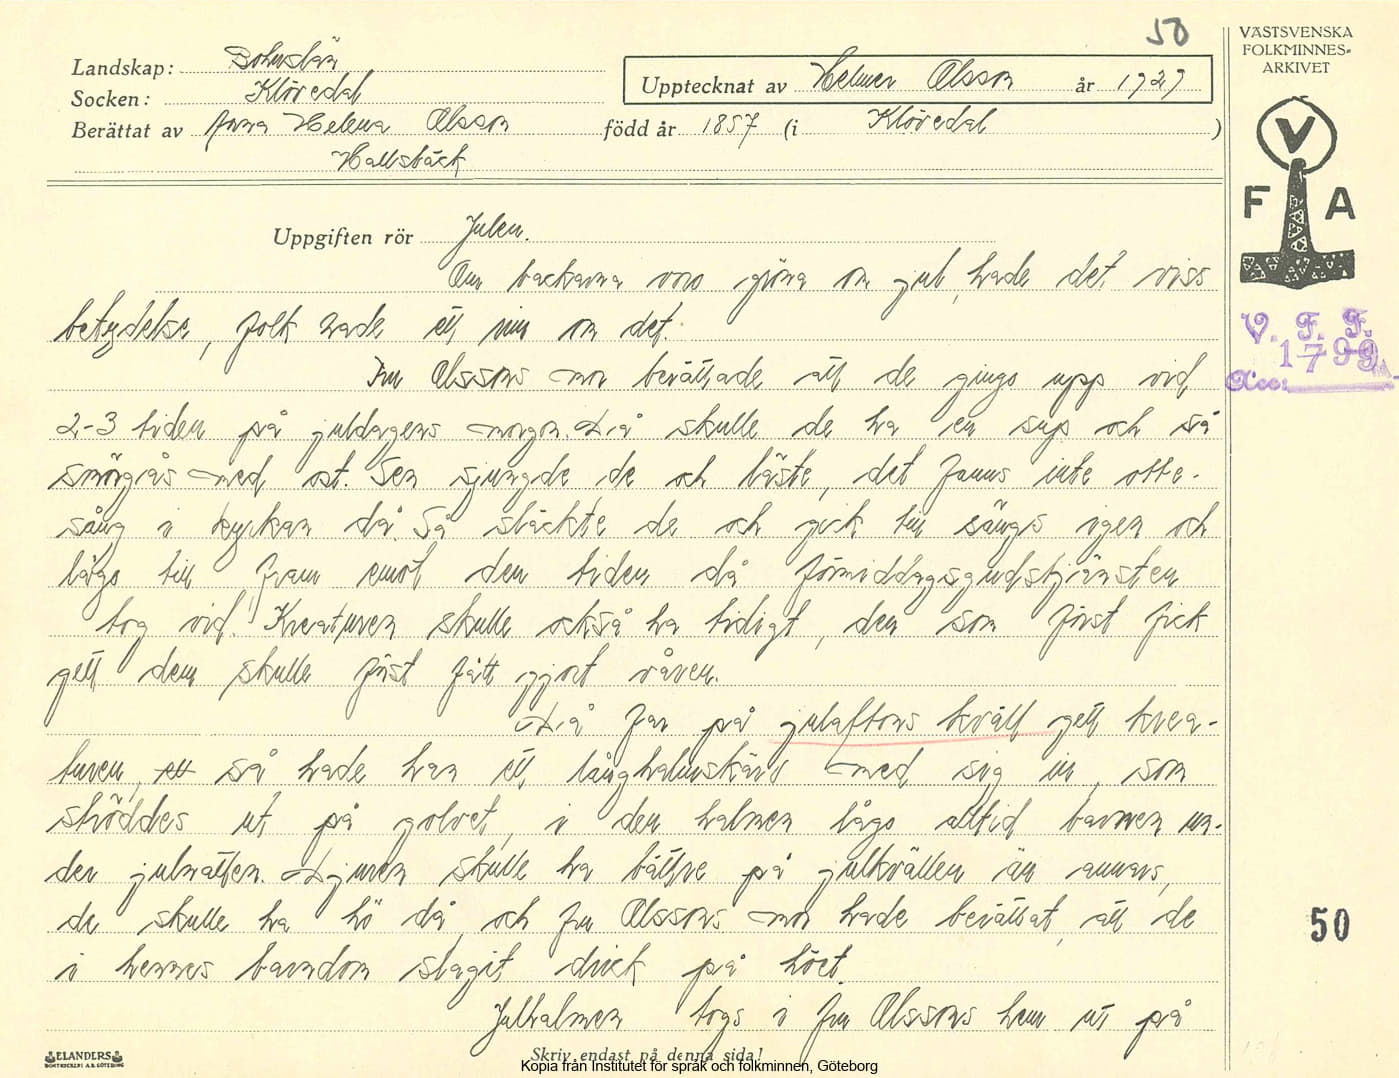 50
VÄSTSVENSKA
FOLKMINNES-
ARKIVET
Landskap: Bohuslän
Socken: Klövedal
Upptecknat av Helmer Olsson år 1927
Berättat av Anna Helena Olsson född år 1857 (i Klövedal)
Hallsbäck
V
F A
Uppgiften rör Julen.
Om backarna voro gröna om jul, hade det viss
betydelse, folk hade ett min om det.
Fru Olssons mor berättade att de gingo upp vid
2-3 tiden på juldagens morgon. Då skulle de ha en sup och så
smörgås med ost. Sen sjungde de och läste, det fanns inte otte-
sång i kyrkan då. Så släckte de och gick till sängs igen och
lågo till fram emot den tiden då förmiddagsgudstjänsten
tog vid. Kreaturen skulle också ha tidigt, den som först fick
gett dem skulle först fått gjort våren.
Då far på julaftons kväll gett krea-
turen, så hade han ett långhalmskärv med sig in, som
ströddes ut på golvet, i den halmen lågo alltid barnen un-
der julnatten. Djuren skulle ha bättre på julkvällen än annars,
de skulle ha hö då, och fru Olssons mor hade berättat, att de
i hennes barndom slagit drick på höet.
Julhalmen togs i fru Olssons hem ut på
V. F. F.
1799
Acc:
50
ELANDERS
BOKTRYCKERI A.B. GÖTEBORG
Skriv endast på denna sida!
Kopia från Institutet för språk och folkminnen, Göteborg